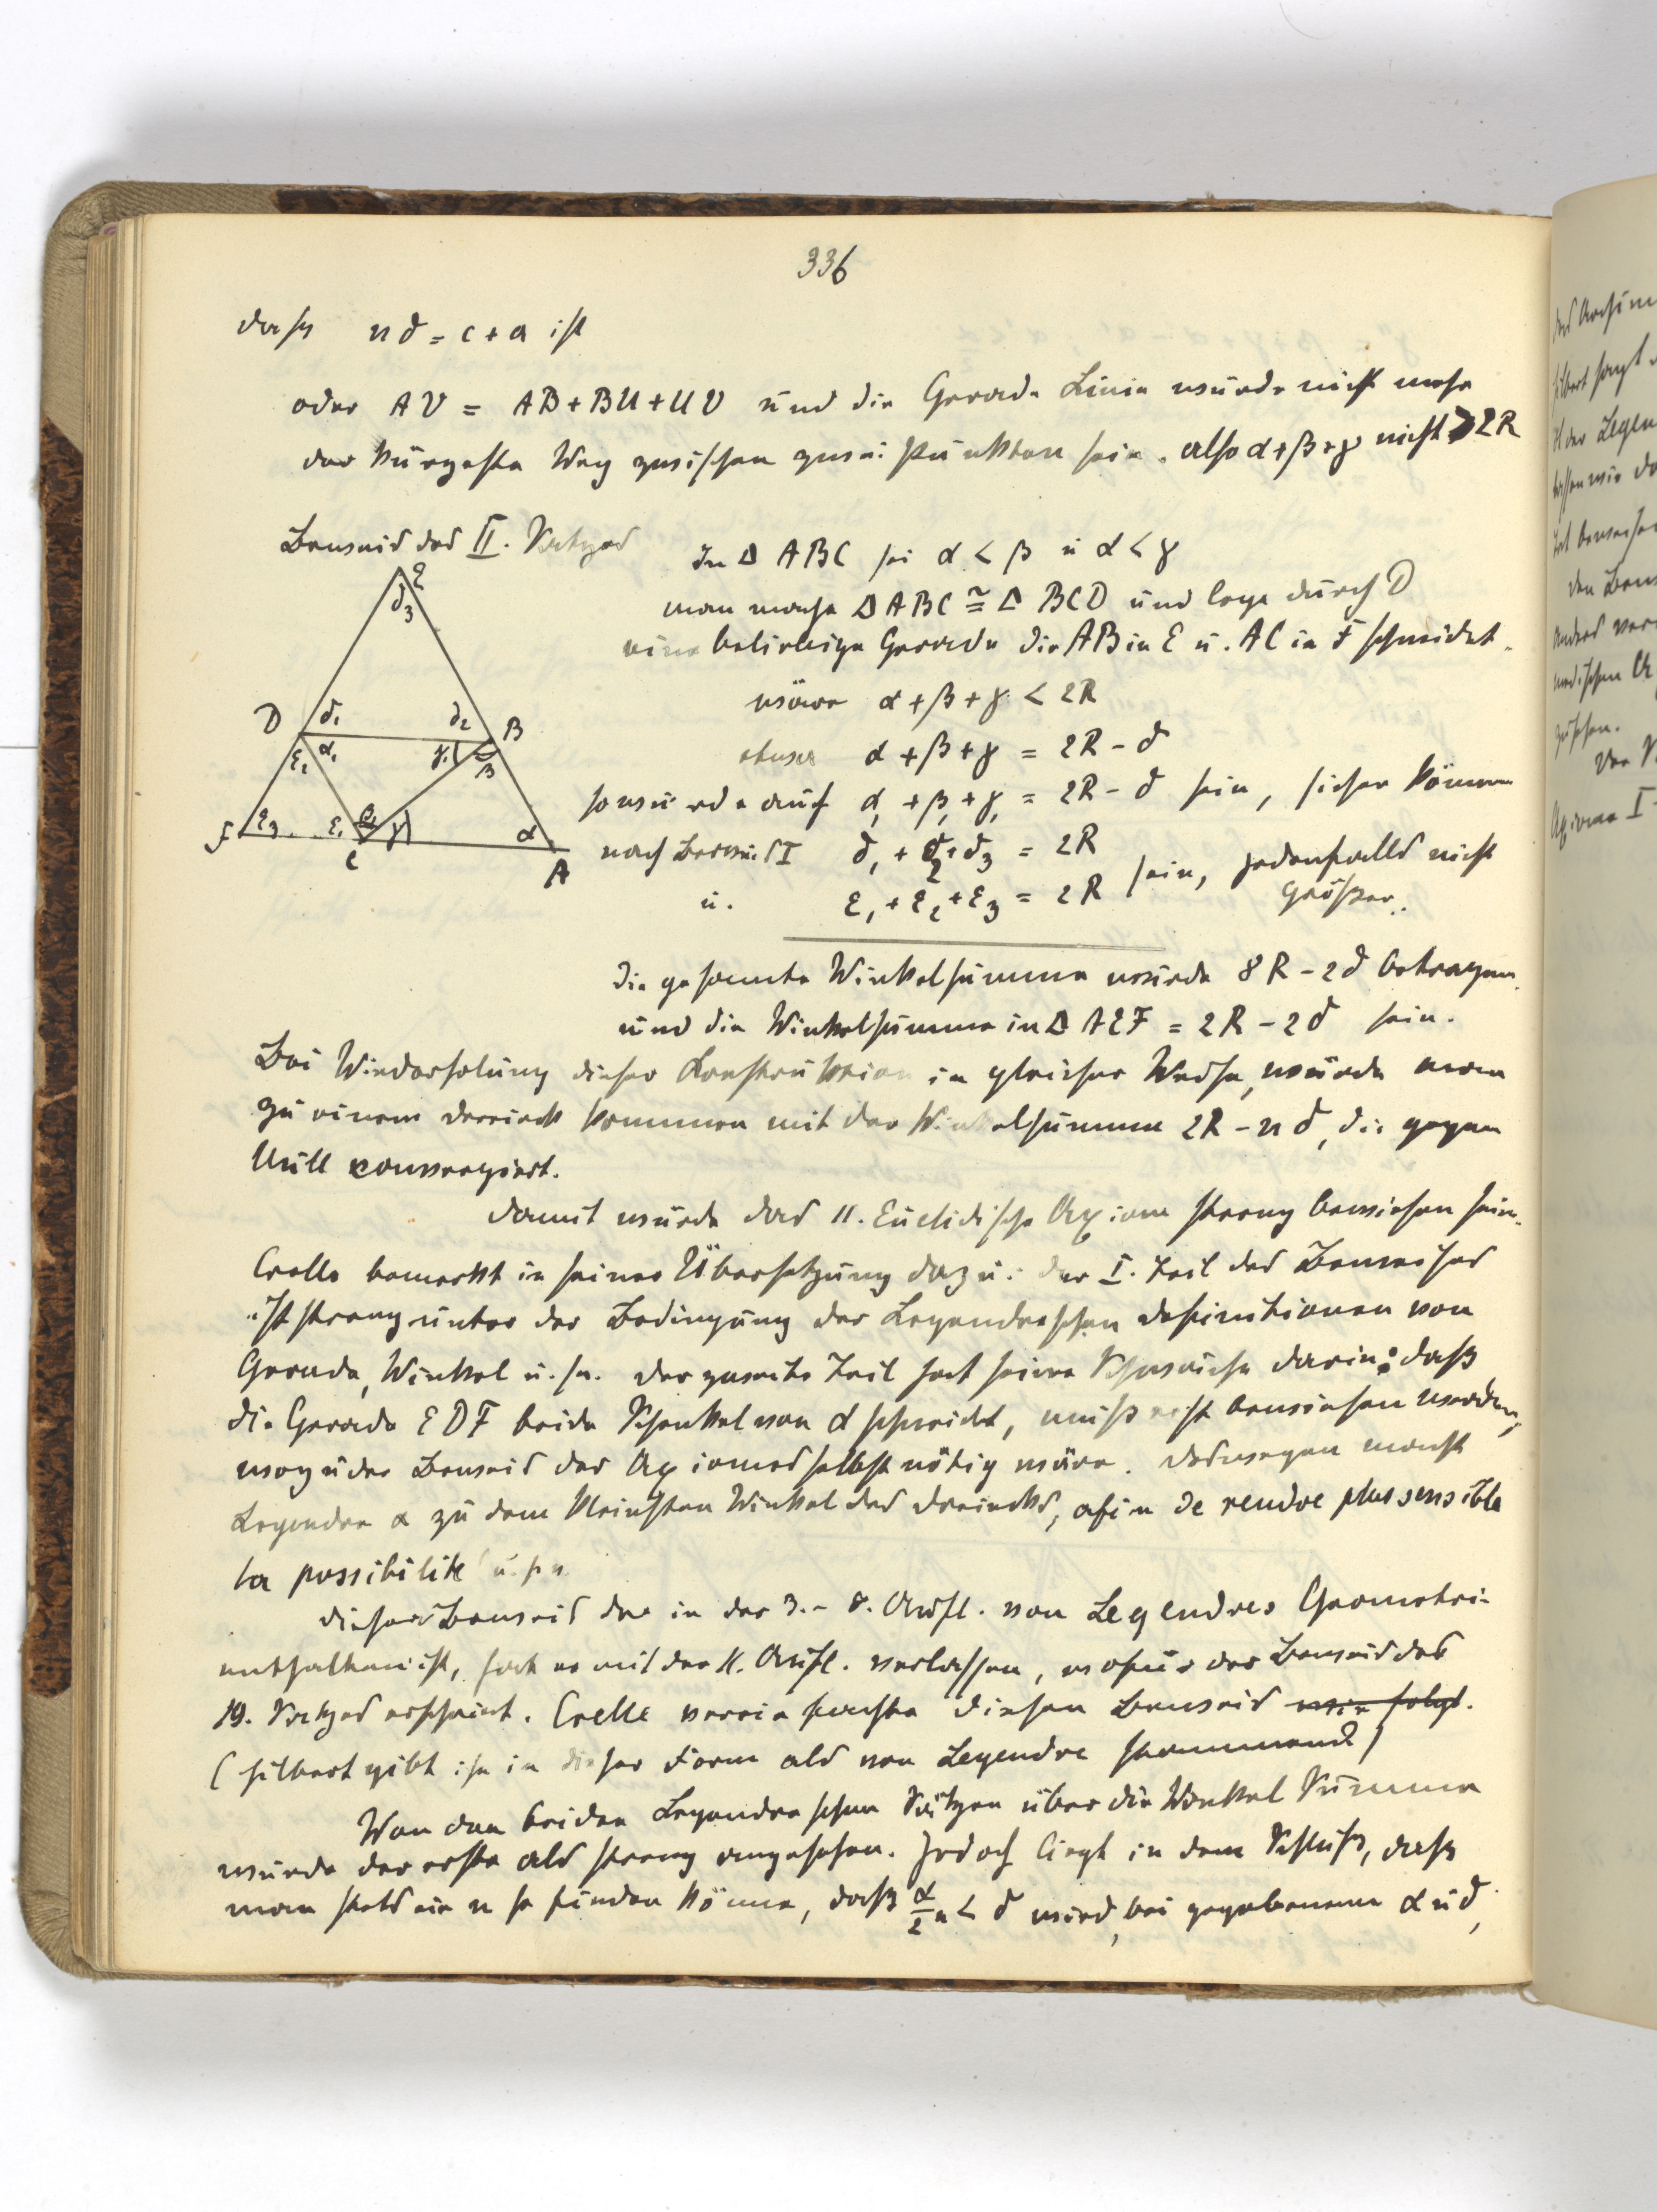 336
dass nδ = c + a ist
oder AV = AB + BU + UV und die Gerade Linie würde nicht mehr
der kürzeste Weg zwischen zwei Punkten sein. also α+β+γ nicht > 2R
Beweis des II. Satzes
In Δ ABC sei α < β u α < γ
man mache Δ ABC ≅ Δ BCD und lege durch D
eine beliebige Gerade die AB in E u. AC in F schneidet.
wäre α + β + γ < 2R
etwa α + β + γ = 2R − δ
so würde auch α₁ + β₁ + γ₁ = 2R − δ sein, sicher können
nach Beweis I δ₁ + δ₂ + δ₃ = 2R
u. ε₁ + ε₂ + ε₃ = 2R sein, jedenfalls nicht
größer.
E
δ₃
D δ₁ δ₂ B
ε₂ α₁ γ₁ β
F ε₃ ε₁ β₁ γ α
C A
die gesamte Winkelsumme würde 8R − 2δ betragen
und die Winkelsumme in Δ AEF = 2R − 2δ sein.
Bei Wiederholung dieser Konstruktion in gleicher Weise, würde man
zu einem Dreieck kommen mit der Winkelsumme 2R − nδ, die gegen
Null konvergiert.
Damit würde das 11. Euclidische Axiom streng bewiesen sein.
Crelle bemerkt in seiner Übersetzung dazu: der I. Teil des Beweises
ist streng unter der Bedingung der Legendreschen Definitionen von
Gerade, Winkel u.s.w. Der zweite Teil hat seine Schwäche darin: daß
die Gerade EDF beide Schenkel von α schneidet, muß erst bewiesen werden,
wozu der Beweis des Axiomes selbst nötig wäre. Deswegen macht
Legendre α zu dem kleinsten Winkel des Dreiecks, afin de rendre plus sensible
la possibilité u.s.w.
Dieser Beweis der in der 3.- 8. Aufl. von Legendres Geometrie
enthalten ist, hat er mit der 11. Aufl. verlassen, wofür der Beweis des
19. Satzes erscheint. Crelle vereinfachte diesen Beweis wie folgt.
(Hilbert gibt ihn in dieser Form als von Legendre stammend)
Von den beiden Legendreschen Sätzen über die Winkel Summe
wurde der erste als streng angesehen. Jedoch liegt in dem Schluß, daß
man stets ein n so finden könne, daß α/2ⁿ < δ wird, bei gegebenem α u δ,